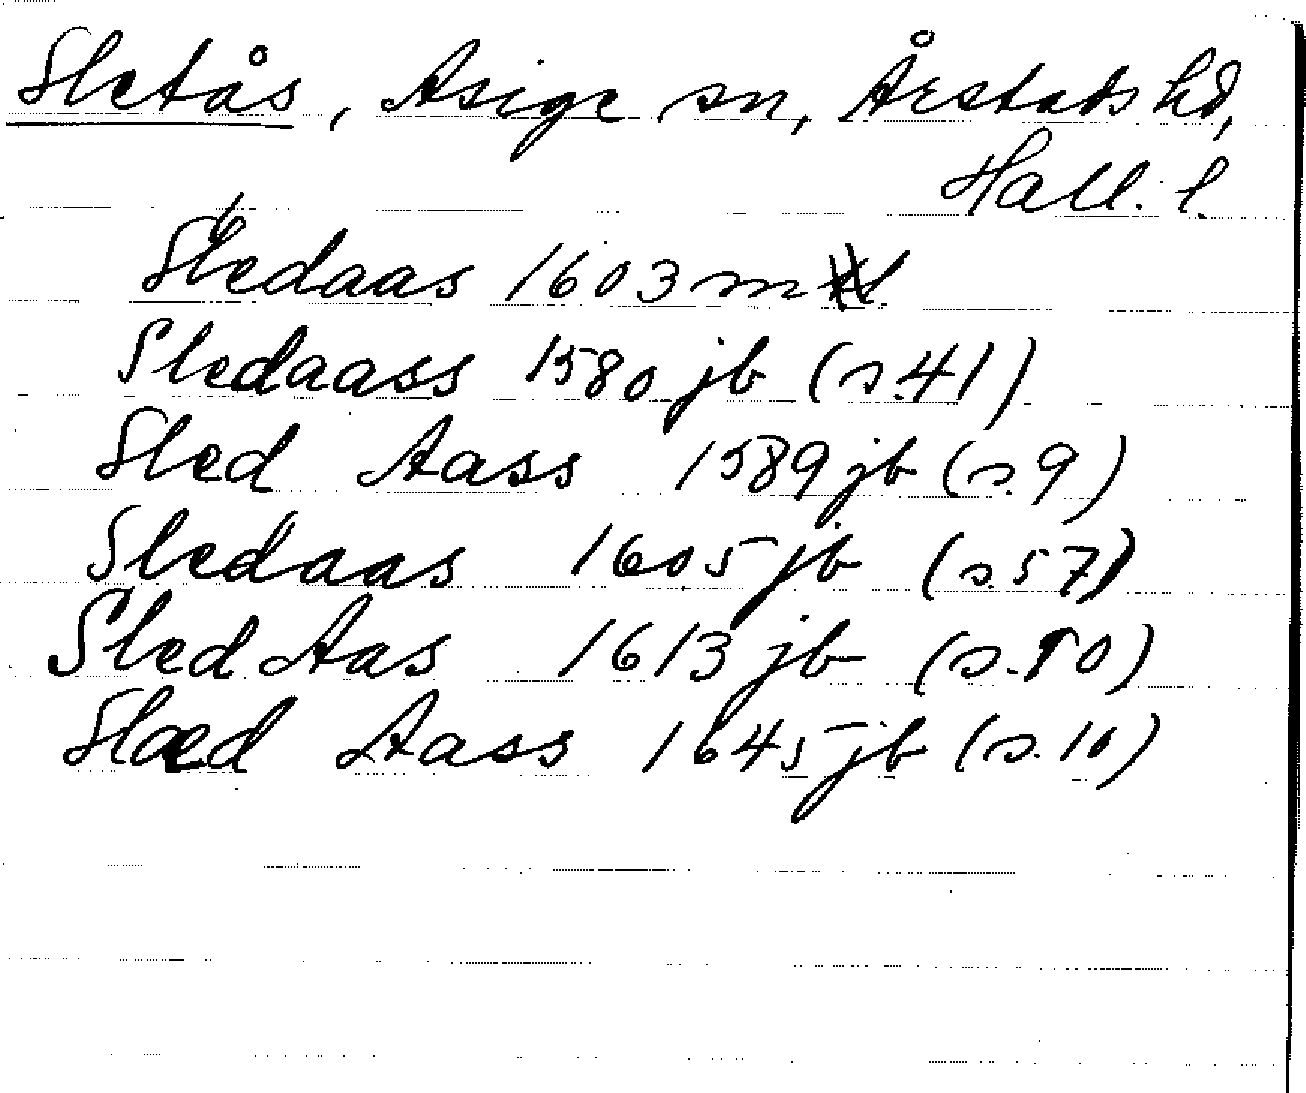 Sletås, Asige sn, Årstads hd,
Hall. l.
Sledaas 1603 m
Sledaass 1580 jb (s.41)
Sled Aass 1589 jb (s.9)
Sledaas 1605 jb (s.57)
Sled Aas 1613 jb (s.10)
Slæd Aass 1645 jb (s.10)